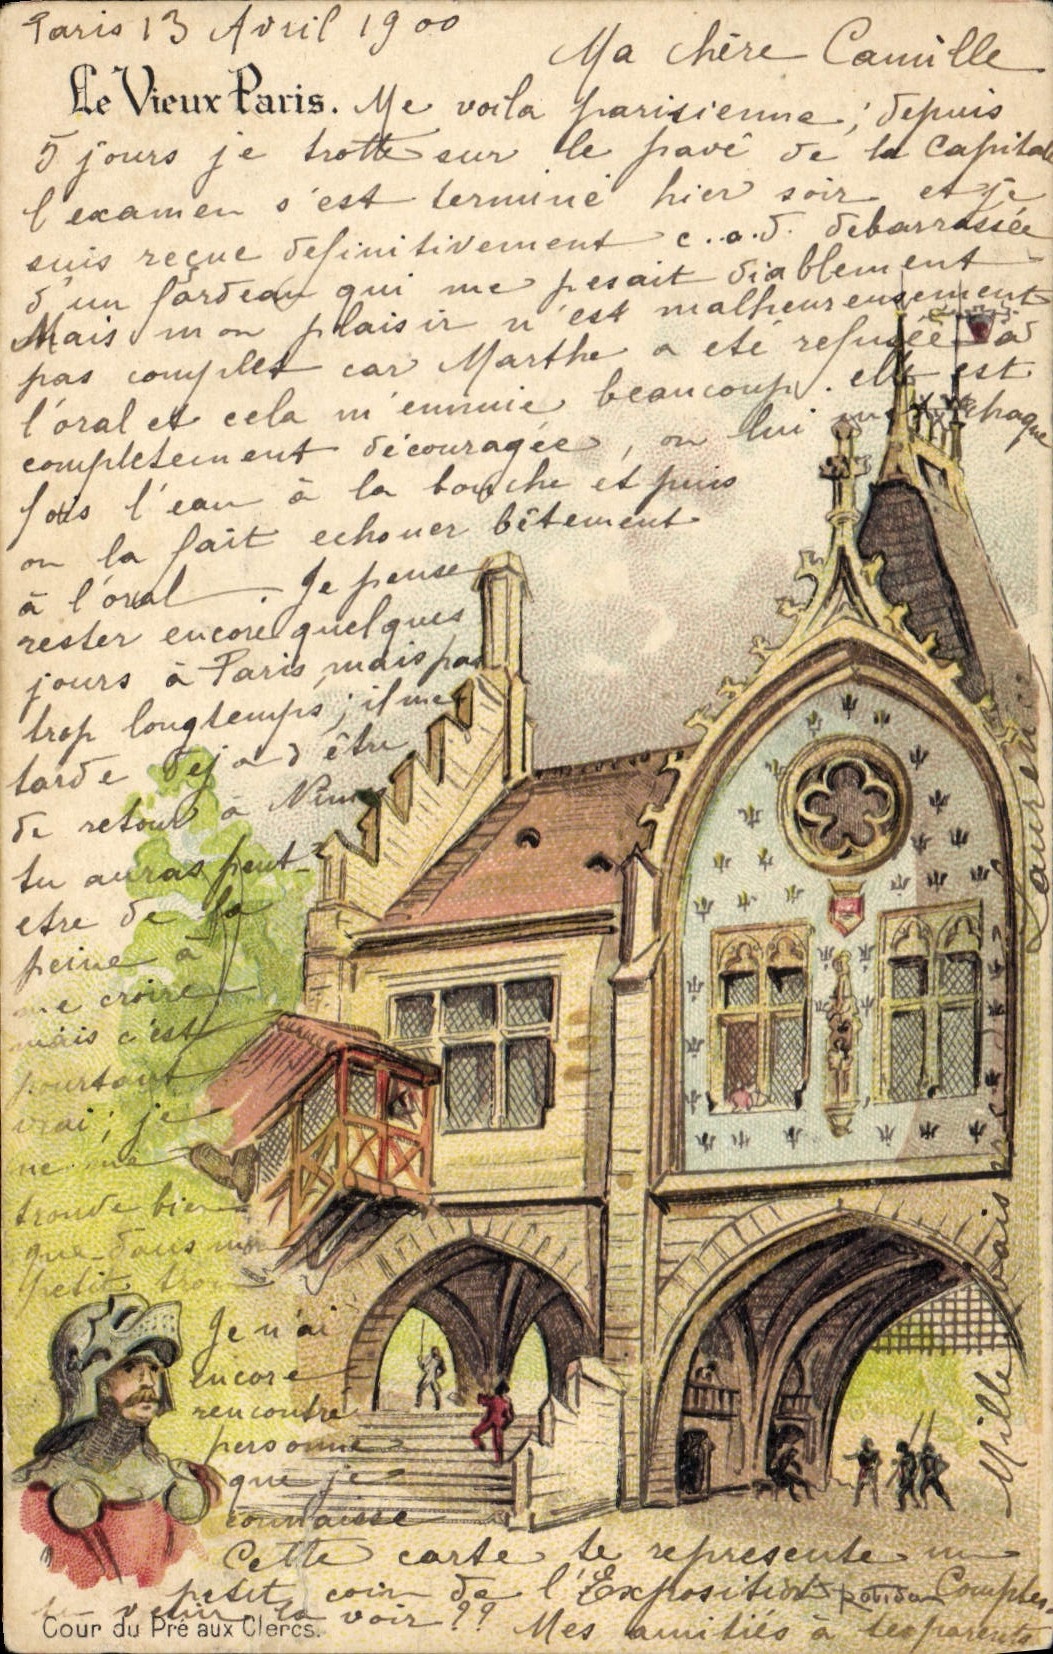 Paris 13 Avril 1900
Ma chère Camille
Le Vieux Paris.
Me voila parisienne; depuis
5 jours je trotte sur le pavé de la Capitale
l'examen s'est terminé hier soir et je
suis reçue definitivement c.a.d. debarrassée
d'un fardeau qui me pesait diablement
Mais mon plaisir n'est malheureusement
pas complet car Marthe a eté refusée à
l'oral et cela m'ennuie beaucoup. elle est
completement décourageé, on lui met chaque
fois l'eau à la bouche et puis
on la fait echouer bêtement
à l'oral. Je pense
rester encore quelques
jours à Paris, mais pas
trop longtemps; il me
tarde deja d'être
de retour à Nimes
tu auras peut-
etre de la
peine à
me croire
mais c'est
pourtant
vrai; je
ne me
trouve bien
que dans mon
petit trou
Je n'ai
encore
rencontré
personne
que je
connaisse
Cette carte te represente un
petit coin de l'Exposition Comptes-
tu venir la voir ??
Mes amitiés à tes parents
Mille bais
Cour du Pré aux Clercs.